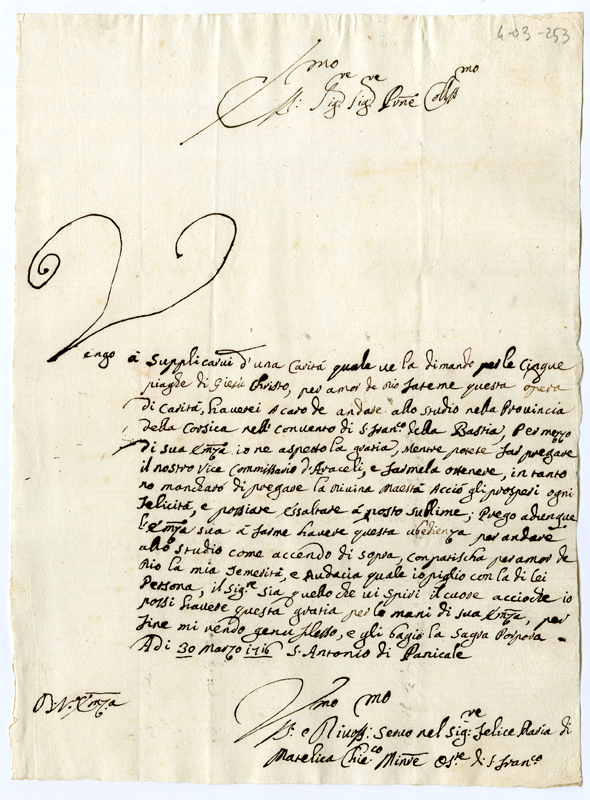 4-03-253
Emo
P: Sig:re Sig:re Prne Collmo
Vengo à Supplicarvi d'una Carità quale ve la dimando per le Cinque
piaghe di Giesù Christo, per amor de Dio fateme questa opera
di Carità, haverei A caro de andare allo studio nella Provincia
della Corsica nell'Convento di S. Franco: della Bastia, Per mezzo
di sua Emza io ne aspetto la gratia, Mentre potete far pregare
il nostro Vice Commissario d'Araceli, e farmela ottenere, in tanto
no mancharò di pregare la Divina Maestà Acciò gli prosperi ogni
felicità, e possiate essaltare à posto sublime; Prego adunque
l'Emza sua à farme havere questa ubedienza per andare
allo studio come accendo di sopra, compatischa per amor de
Dio la mia Temerità, e Audacia quale io piglio con la di lei
Persona, il Sig:re Sia quello che vi spiri il cuore accioche io
possi havere questa gratia per le mani di sua Emza, per
fine mi rendo genuflesso, e gli bagio la Sagra Porpora -
A di 30 Marzo 1716 S. Antonio di Panicale
D V:ra Emza
Umo mo
e Divoss: Servo nel Sig:re Felice Maria di
Matelica Chie:co Minre Oss:te di S. Fran:co